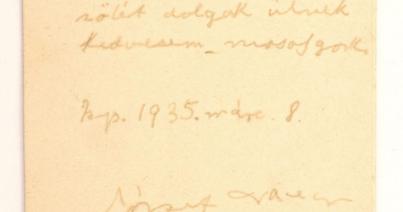 szőlét dolgok ülnek
kedvesem – mosolygok.
Bp. 1935. márc. 8.
József